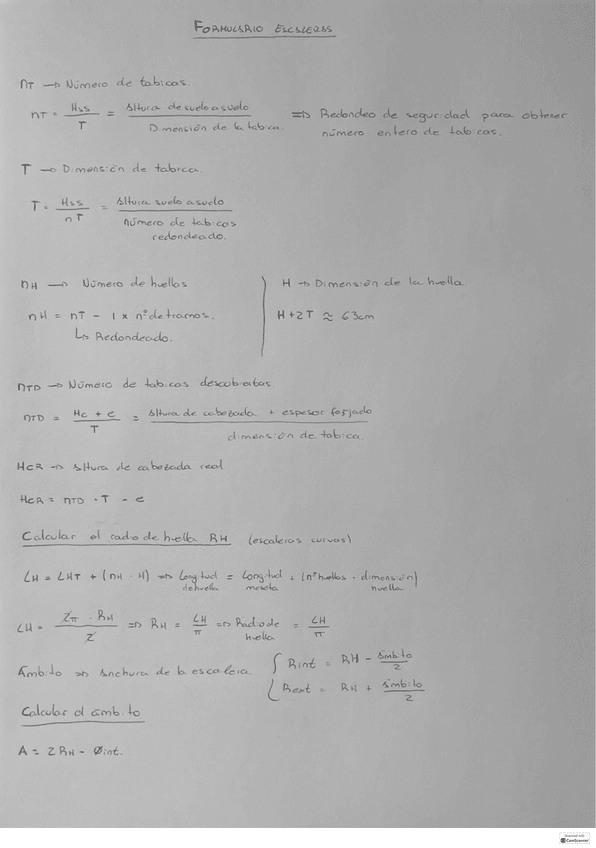 FORMULARIO ESCALERAS
nT → Número de tabicas.
nT = Hss / T = Altura de suelo a suelo / Dimensión de la tabica. ⇒ Redondeo de seguridad para obtener número entero de tabicas.
T → Dimensión de tabica.
T = Hss / nT = Altura suelo a suelo / número de tabicas redondeado.
nH → Número de huellas.
nH = nT - 1 x nº de tramos.
↳ Redondeado.
H → Dimensión de la huella.
H + 2T ≈ 63cm
nTD → Número de tabicas descubiertas
nTD = Hc + e / T = Altura de cabezada + espesor forjado / dimensión de tabica.
HcR → Altura de cabezada real
HcR = nTD · T - e
Calcular el radio de huella RH (escaleras curvas)
LH = LHT + (nH · H) ⇒ Longitud de huella = Longitud meseta + (nº huellas · dimensión huella)
LH = 2π · RH / 2 ⇒ RH = LH / π ⇒ Radio de huella = LH / π
Ámbito ⇒ Anchura de la escalera.
Rint = RH - ámbito / 2
Rext = RH + ámbito / 2
Calcular el ámbito
A = 2RH - Øint.
Scanned with
CamScanner